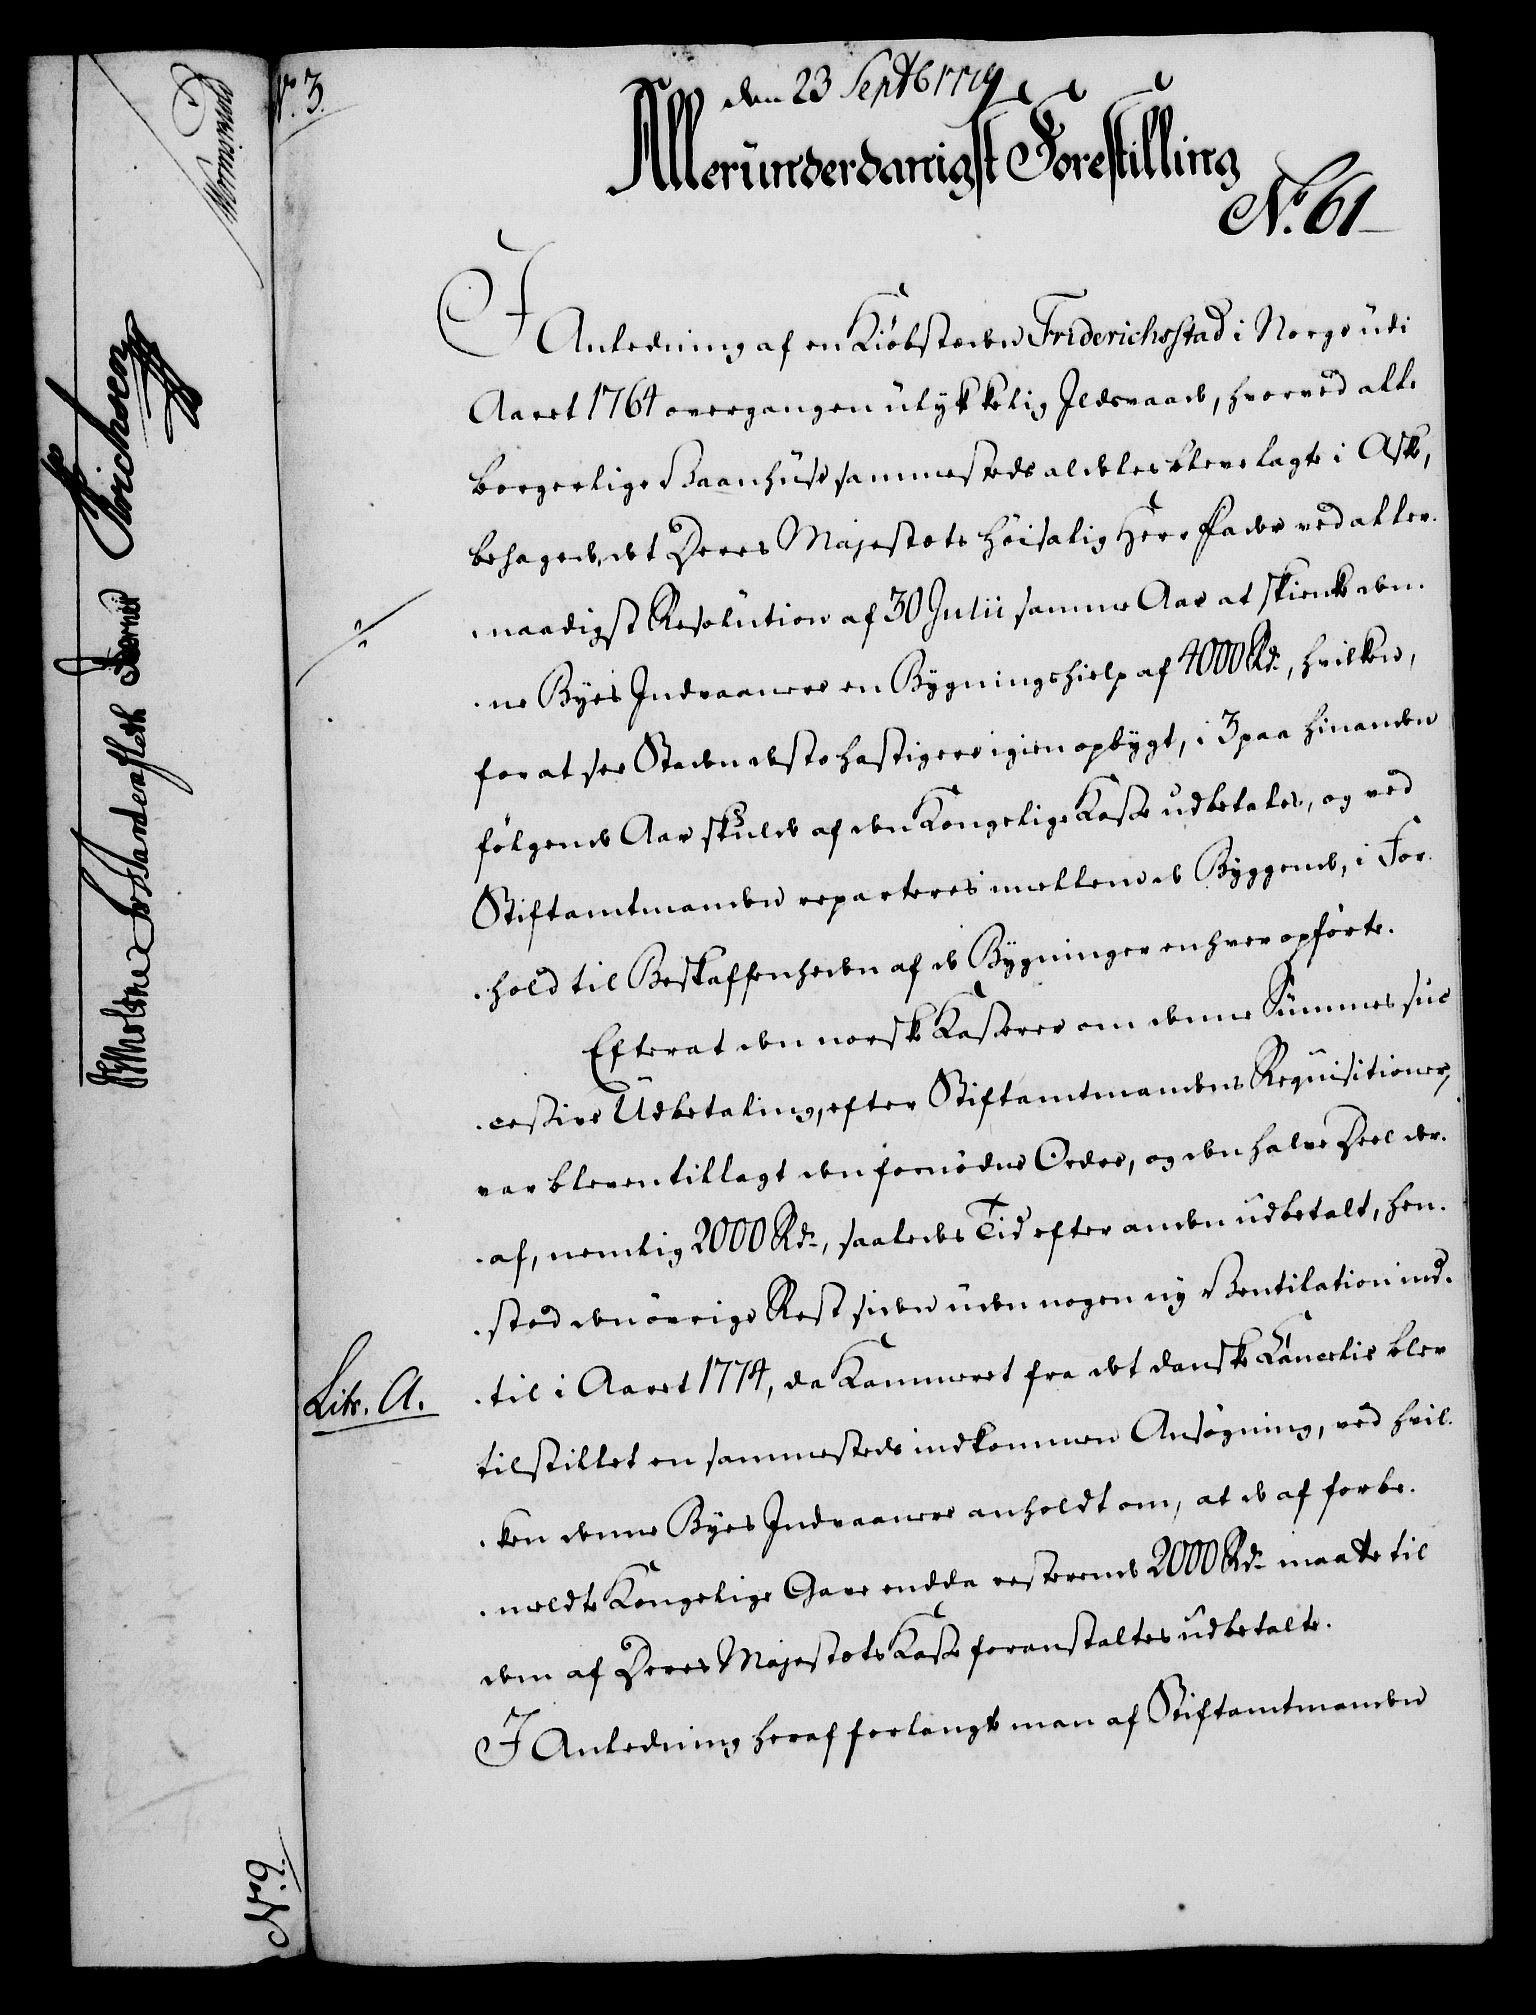 No. 3.
den 23 Sept 1779
Allerunderdanigst Forestilling
No. 61
I Anledning af en Kiøbsteden Friderichsstad i Norge udi
Aaret 1764 overgangen ulykkelig Ildsvaade, hvorved alle
borgerlige Vaanhuse sammesteds aldeles bleve lagte i Aske,
behagede det Deres Majestets høisalig Herr Fader ved aller-
naadigst Resolution af 30 Julii samme Aar at skienke den-
ne Byes Indvaanere en Bygningshielp af 4000 Rd., hvilken,
for at see Staden desto hastigere igien opbygt, i 3 paa hinanden
følgende Aar skulde af den Kongelige Kasse udbetales, og ved
Stiftamtmanden reparteres imellem de Byggende, i For-
hold til Beskaffenheden af de Bygninger enhver opførte.
Efterat den norske Kasserer om denne Summes suc-
cessive Udbetaling, efter Stiftamtmandens Requisitioner,
var bleven tillagt den fornødne Ordre, og den halve Deel der-
af, nemlig 2000 Rd., saaledes Tid efter anden udbetalt, hen-
stod den øvrige Rest siden uden nogen ny Ventilation ind-
til i Aaret 1774, da Kammeret fra det danske Cancelie blev
Litr. A.
tilstillet en sammesteds indkommen Ansøgning, ved hvil-
ken denne Byes Indvaanere anholdt om, at de af forbe-
meldte Kongelige Gave endda resterende 2000 Rd. maatte til
dem af Deres Majestets Kasse foranstaltes udbetalte.
I Anledning heraf forlangte man af Stiftamtmanden
No. 9.